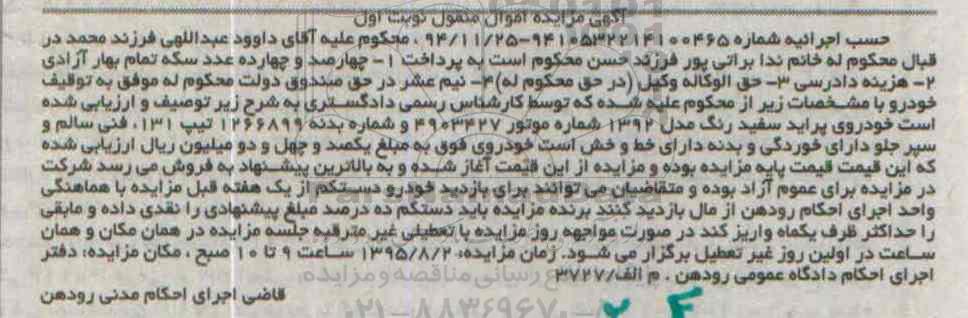 آگهی مزایده اموال منقول نوبت اول
حسب اجرائیه شماره ۹۴۱۰۵۳۲۲۱۴۱۰۰۴۶۵-۹۴/۱۱/۲۵ ، محکوم علیه آقای داوود عبداللهی فرزند محمد در
قبال محکوم له خانم ندا براتی پور فرزند حسن محکوم است به پرداخت ۱- چهارصد و چهارده عدد سکه تمام بهار آزادی
۲- هزینه دادرسی ۳- حق الوکاله وکیل (در حق محکوم له)۴- نیم عشر در حق صندوق دولت محکوم له موفق به توقیف
خودرو با مشخصات زیر از محکوم علیه شده که توسط کارشناس رسمی دادگستری به شرح زیر توصیف و ارزیابی شده
است خودروی پراید سفید رنگ مدل ۱۳۹۲ شماره موتور ۴۹۰۳۴۲۷ و شماره بدنه ۱۲۶۶۸۹۹ تیپ ۱۳۱، فنی سالم و
سپر جلو دارای خوردگی و بدنه دارای خط و خش است خودروی فوق به مبلغ یکصد و چهل و دو میلیون ریال ارزیابی شده
که این قیمت قیمت پایه مزایده بوده و مزایده از این قیمت آغاز شده و به بالاترین پیشنهاد به فروش می رسد شرکت
در مزایده برای عموم آزاد بوده و متقاضیان می توانند برای بازدید خودرو دستکم از یک هفته قبل مزایده با هماهنگی
واحد اجرای احکام رودهن از مال بازدید کنند برنده مزایده باید دستکم ده درصد مبلغ پیشنهادی را نقدی داده و مابقی
را حداکثر ظرف یکماه واریز کند در صورت مواجهه روز مزایده با تعطیلی غیر مترقبه جلسه مزایده در همان مکان و همان
ساعت در اولین روز غیر تعطیل برگزار می شود. زمان مزایده: ۱۳۹۵/۸/۲ ساعت ۹ تا ۱۰ صبح ، مکان مزایده: دفتر
اجرای احکام دادگاه عمومی رودهن . م الف/۳۷۲۷
قاضی اجرای احکام مدنی رودهن
رسانی مناقصه و مزایده
۰۲۱-۸۸۳۴۹۶۷۰